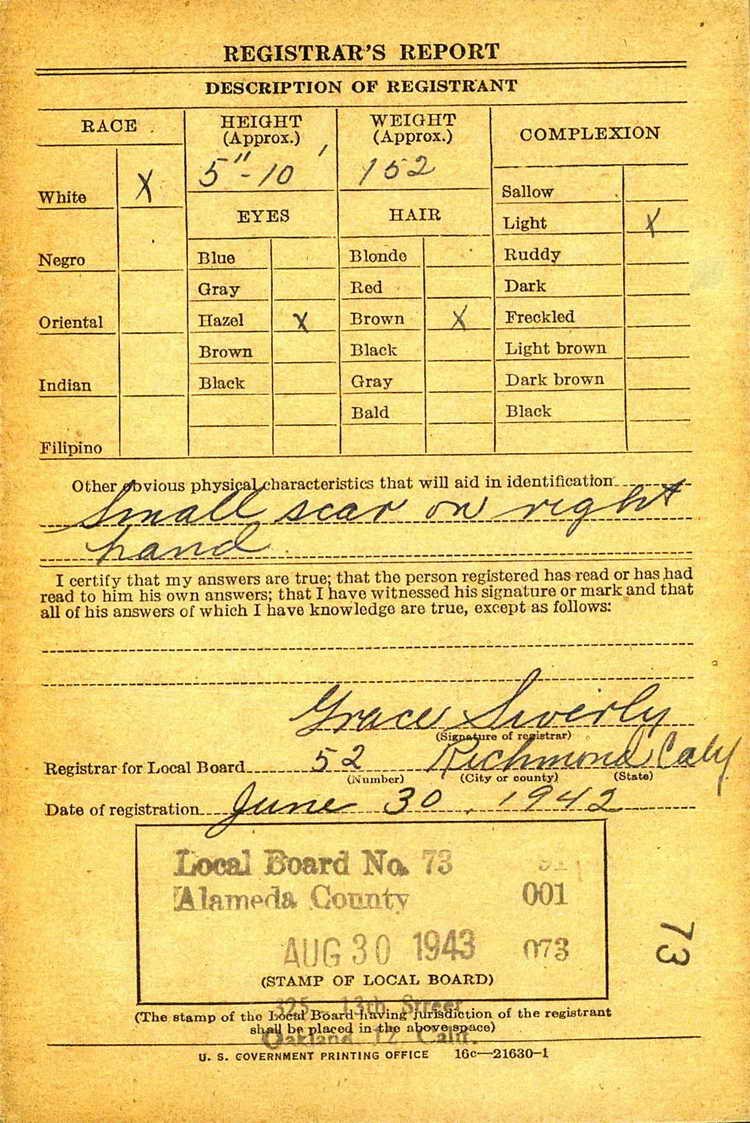 REGISTRAR'S REPORT
DESCRIPTION OF REGISTRANT
RACE
HEIGHT
(Approx.)
WEIGHT
(Approx.)
COMPLEXION
5"-10'
152
White X
Sallow
EYES
HAIR
Light X
Negro
Blue
Blonde
Ruddy
Gray
Red
Dark
Oriental
Hazel X
Brown X
Freckled
Brown
Black
Light brown
Indian
Black
Gray
Dark brown
Bald
Black
Filipino
Other obvious physical characteristics that will aid in identification
Small scar on right
hand
I certify that my answers are true; that the person registered has read or has had
read to him his own answers; that I have witnessed his signature or mark and that
all of his answers of which I have knowledge are true, except as follows:
Grace Swerly
(Signature of registrar)
Registrar for Local Board 52 Richmond Calif
(Number) (City or county) (State)
Date of registration June 30, 1942
Local Board No. 73
Alameda County 001
AUG 30 1943 073
73
(STAMP OF LOCAL BOARD)
325 13th Street
(The stamp of the Local Board having jurisdiction of the registrant
shall be placed in the above space)
Oakland 12 Calif.
U. S. GOVERNMENT PRINTING OFFICE 16c—21630-1